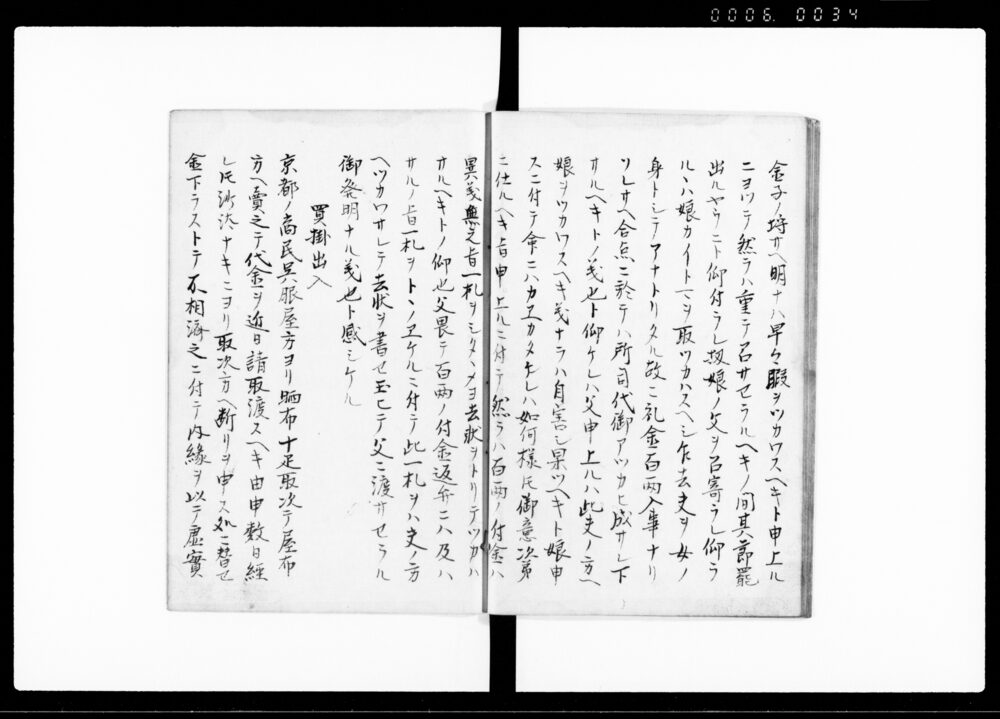 0006. 0034
金子ノ埒サヘ明ナハ早々暇ヲツカワスヘキト申上ル
ニヨツテ然ラハ重テ召サセラルヘキノ間其節罷
出ルヤウニト仰付ラレ扨娘ノ父ヲ召寄ラレ仰ラ
ルヽハ娘カイトマヲ取ツカハスヘシ乍去夫ヲ女ノ
身トシテアナトリタル故ニ礼金百両入事ナリ
ソレサヘ合点ニ於テハ所司代御アツカヒ成サレ下
サルヘキトノ義也ト仰ケレハ父申上ルハ此夫ノ方ヘ
娘ヲツカワスヘキ義ナラハ自害シ果ツヘキト娘申
スニ付テ命ニハカヱカタケレハ如何様氏御意次第
ニ仕ルヘキ旨申上ルニ付テ然ラハ百両ノ付金ハ
異義無之旨一札ヲシタヽメヨ去状ヲトリテツカハ
サルヘキトノ仰也父畏テ百両ノ付金返弁ニハ及ハ
サルノ旨一札ヲトヽノヱケルニ付テ此一札ヲハ夫ノ方
ヘツカワサレテ去状ヲ書セ玉ヒテ父ニ渡サセラル
御発明ナル義也ト感シケル
買掛出入
京都ノ商民呉服屋方ヨリ晒布十疋取次テ屋布
方ヘ賣之テ代金ヲ近日請取渡スヘキ由申数日経
レ氏沙汰ナキニヨリ取次方ヘ断リヲ申ス処ニ替セ
金下ラストテ不相済之ニ付テ内縁ヲ以テ虚實